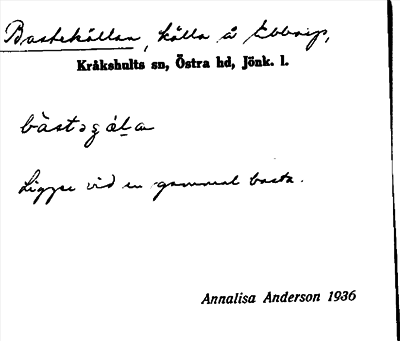 Bastekällan, källa å Ebbarp,
Kråkshults sn, Östra hd, Jönk. l.
bàstəɕɑ́l̠a
Ligger vid en gammal basta.
Annalisa Anderson 1936